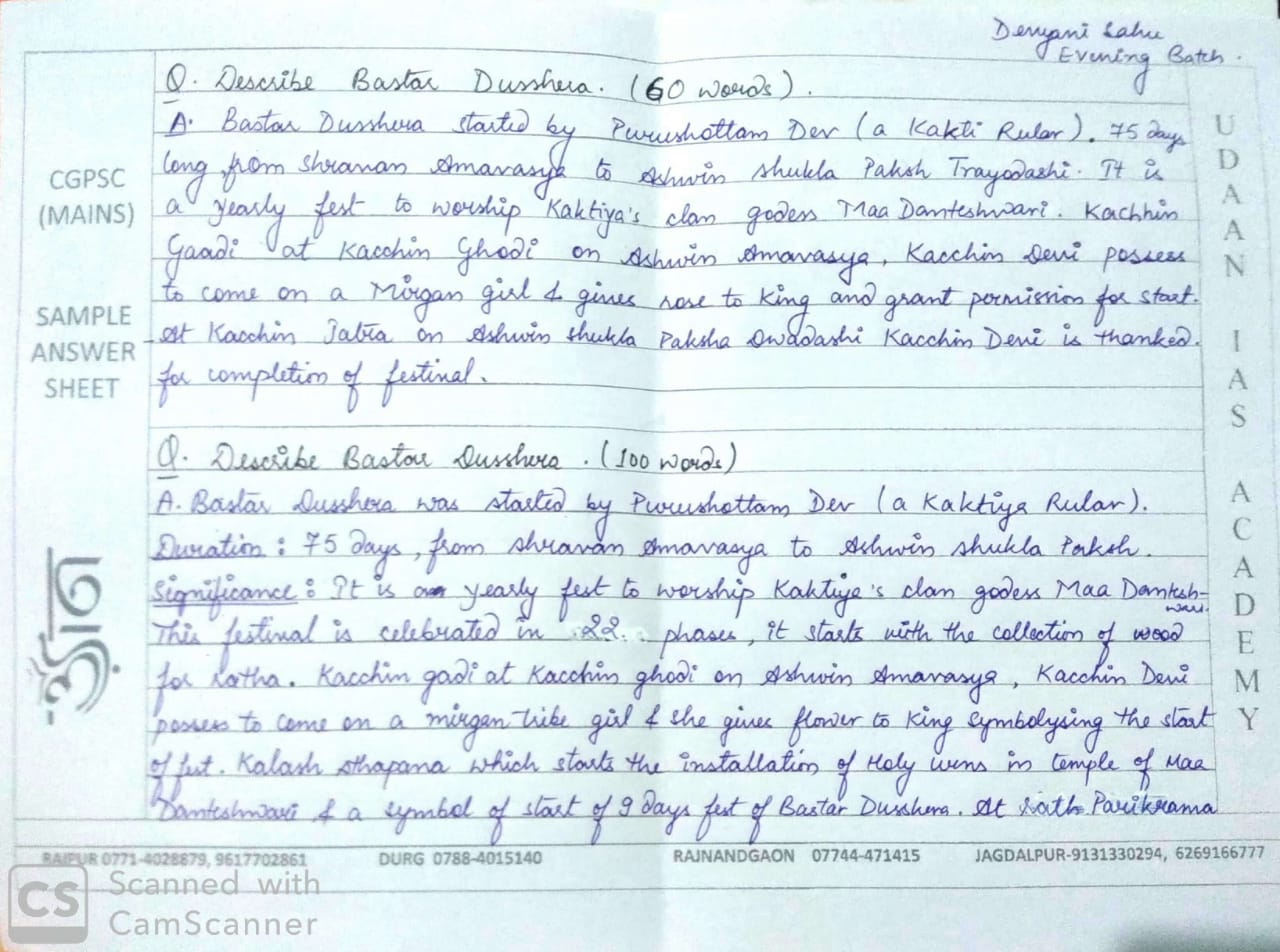 Devyani Sahu
Evening Batch.
Q. Describe Bastar Dusshera. (60 words).
A. Bastar Dusshera started by Purushottam Dev (a Kakti Rular). 75 days
long from Shravan Amavasya to Ashwin Shukla Paksh Trayodashi. It is
a yearly fest to worship Kaktiya's clan godess Maa Danteshwari. Kachhin
Gaadi at Kacchin Ghodi on Ashwin Amavasya, Kacchin Devi possess
to come on a Mirgan girl & gives rose to King and grant permission for start.
At Kacchin Jatra on Ashwin Shukla Paksha Dwadashi Kacchin Devi is thanked.
for completion of festival.
Q. Describe Bastar Dusshera. (100 words)
A. Bastar Dusshera was started by Purushottam Dev (a Kaktiya Rular).
Duration : 75 days, from Shravan Amavasya to Ashwin Shukla Paksh.
Significance : It is a yearly fest to worship Kaktiya's clan godess Maa Dantesh-
wari.
This festival is celebrated in 22 phases, it starts with the collection of wood
for ratha. Kacchin gadi at Kacchin ghodi on Ashwin Amavasya, Kacchin Devi
possess to come on a mirgan tribe girl & she gives flower to King symbolysing the start
of fest. Kalash sthapana which starts the installation of Holy urns in temple of Maa
Danteshwari & a symbol of start of 9 days fest of Bastar Dusshera. At rath Parikrama
CGPSC
(MAINS)
SAMPLE
ANSWER
SHEET
उड़ान
UDAAN IAS ACADEMY
RAIPUR 0771-4028879, 9617702861 DURG 0788-4015140 RAJNANDGAON 07744-471415 JAGDALPUR-9131330294, 6269166777
CS Scanned with
CamScanner